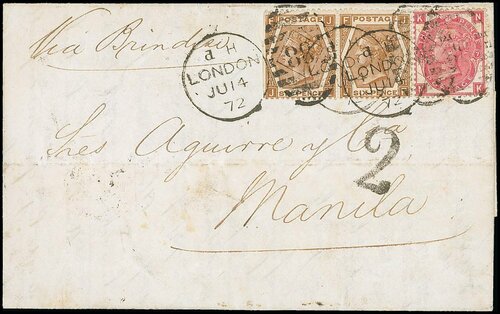 Via Brindisi
POSTAGE
SIXPENCE
POSTAGE
SIXPENCE
d H
LONDON
JU 14
72
LONDON
72
Sres Aguirre y Ca
2
Manila